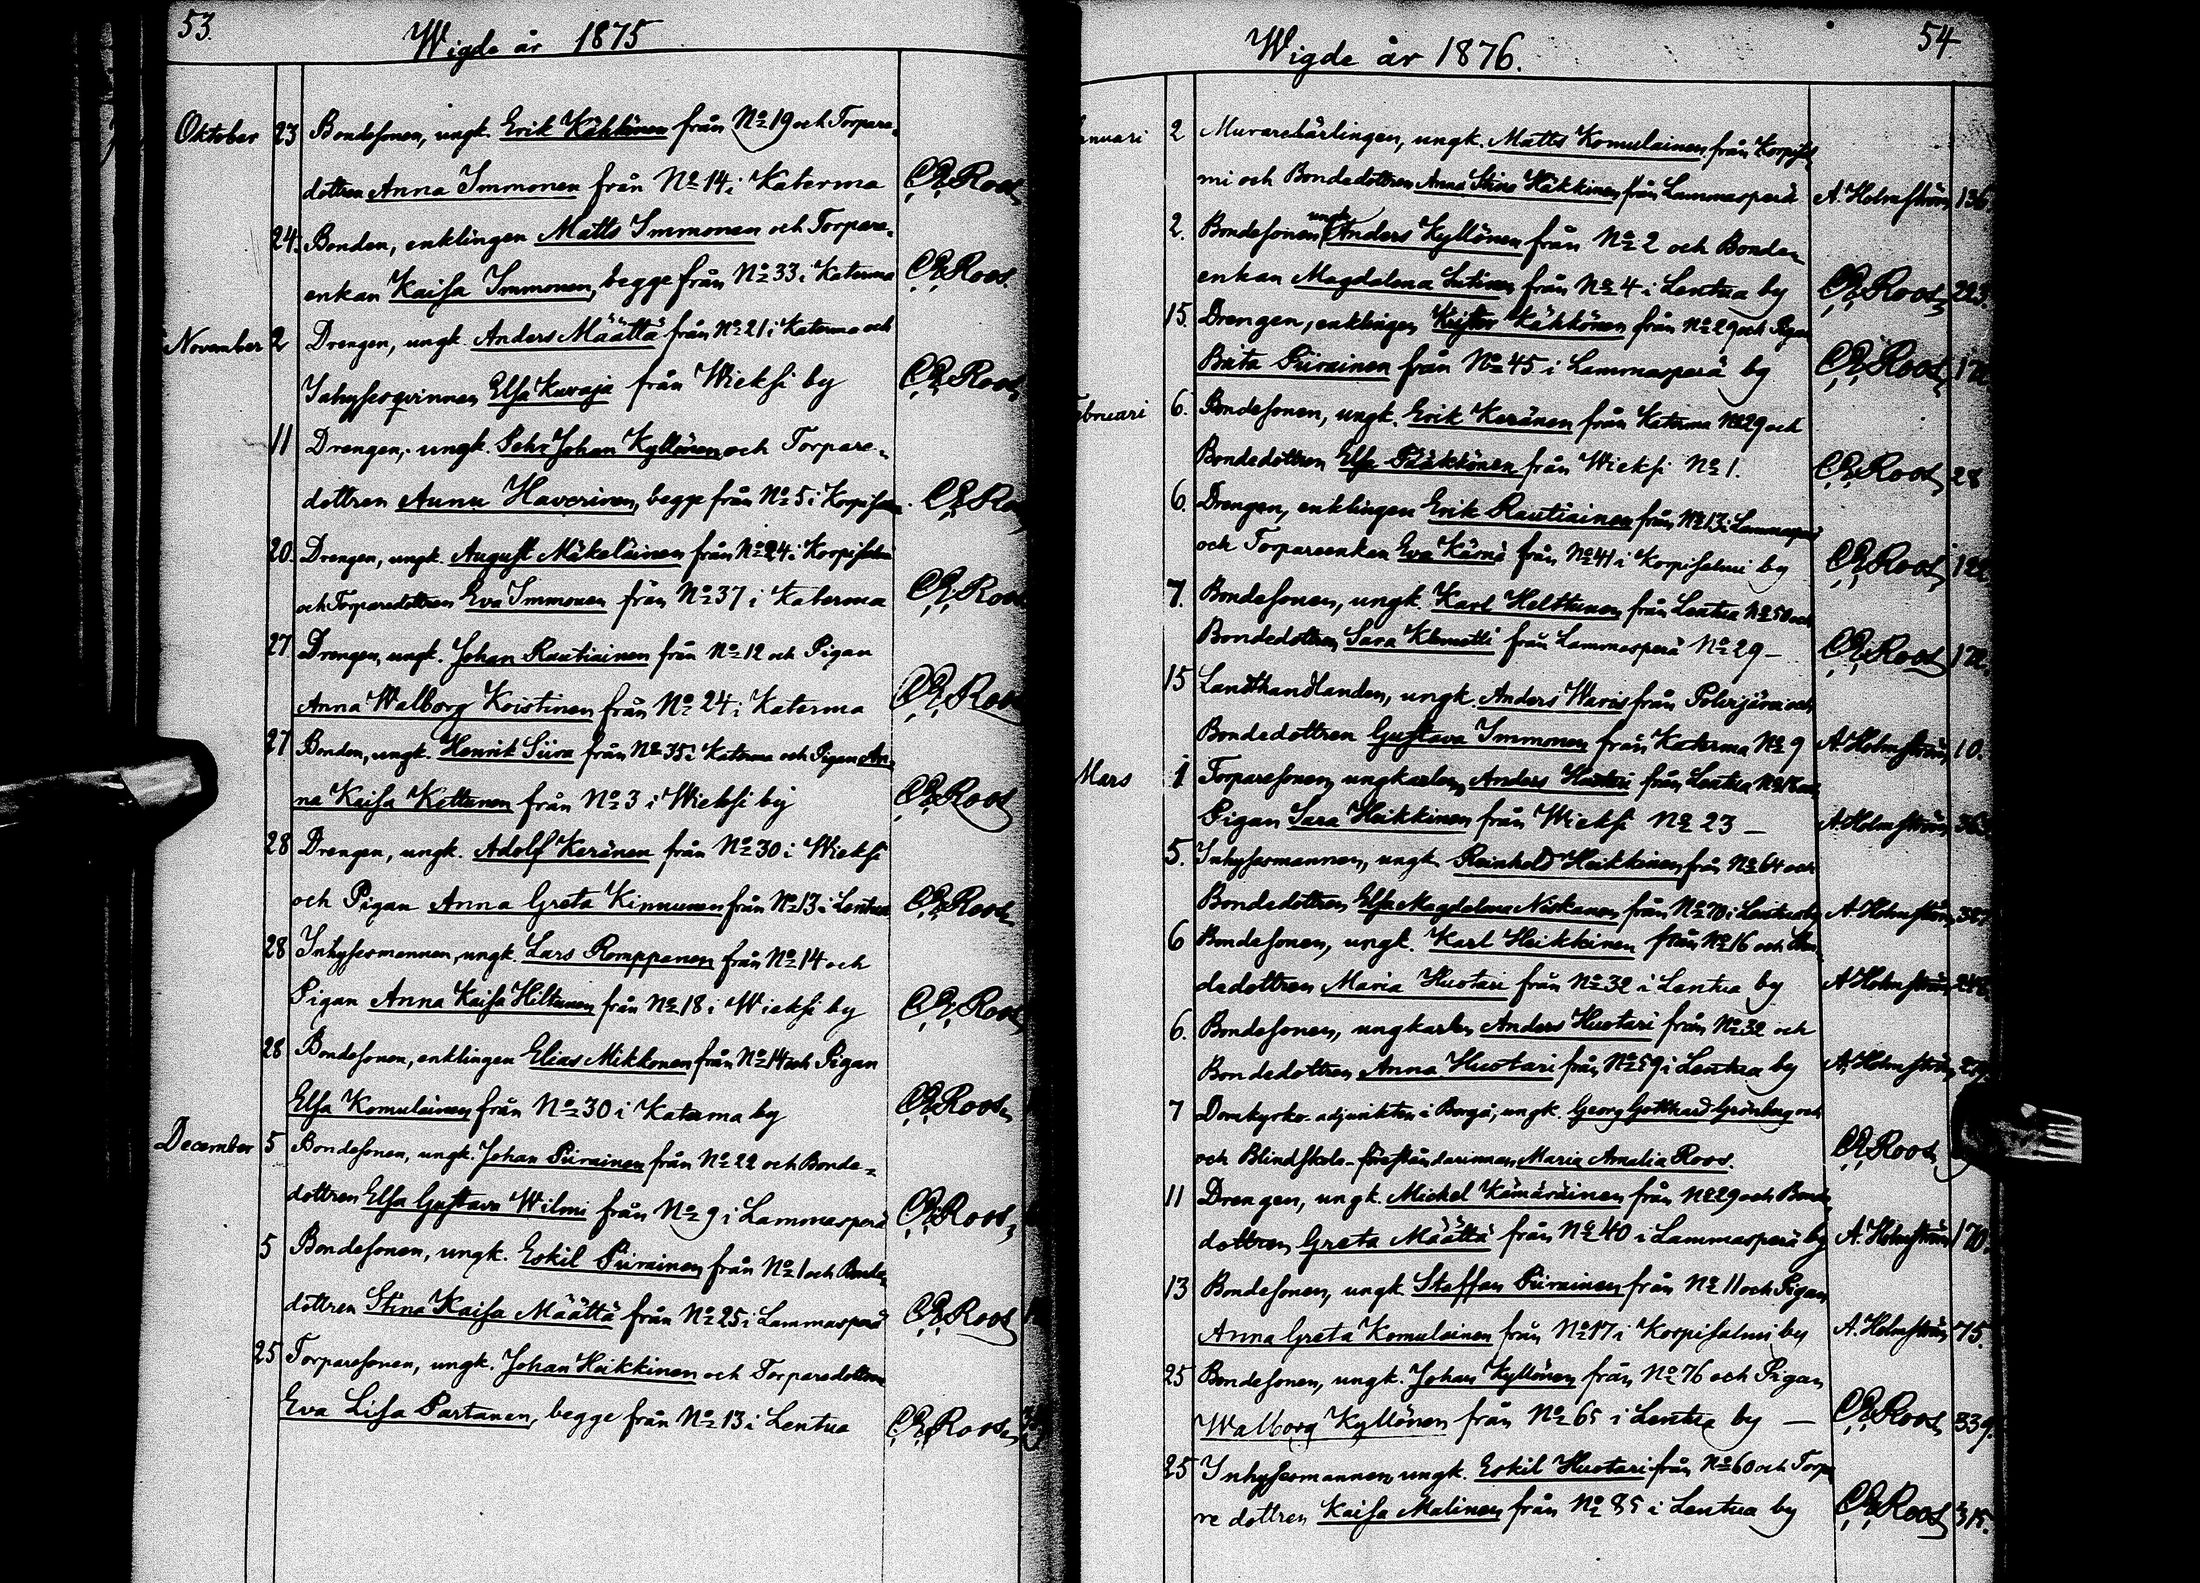 53.
Wigde år 1875
Oktober 23 Bondesonen, ungk. Erik Kähkönen från No 19 och Torpare-
dottren Anna Immonen från No 14 i Katerma Roos
24. Bonden, enklingen Matts Immonen och Torpare-
enkan Kaisa Immonen, begge från No 33 i Katerma Roos
November 2 Drengen, ungk. Anders Määttä från No 21 i Katerma och
Inhysesqvinnan Elsa Kuvaja från Wieksi by Roos
11 Drengen, ungk. Pehr Johan Kyllönen och Torpare-
dottren Anna Haverinen, begge från No 5 i Korpisalmi
20. Drengen, ungk. August Mäkeläinen från No 24 i Korpisalmi
och Torparedottren Eva Immonen från No 37 i Katerma Roos
27 Drengen, ungk. Johan Rautiainen från No 12 och Pigan
Anna Walborg Koistinen från No 24 i Katerma Roos
27 Bonden, ungk. Henrik Siira från No 35 i Katerma och Pigan An-
na Kaisa Kettunen från No 3 i Wieksi by Roos
28 Drengen, ungk. Adolf Keränen från No 30 i Wieksi
och Pigan Anna Greta Kinnunen från No 13 i Lentua Roos
28 Inhysesmannen, ungk. Lars Romppanen från No 14 och
Pigan Anna Kaisa Hiltunen från No 18 i Wieksi by Roos
28 Bondesonen, enklingen Elias Mikkonen från No 14 och Pigan
Elsa Komulainen från No 30 i Katerma by Roos
December 5 Bondesonen, ungk. Johan Piirainen från No 22 och Bonde-
dottren Elsa Gustava Wilmi från No 9 i Lammasperä Roos
5 Bondesonen, ungk. Eskil Piirainen från No 1 och Bonde-
dottren Stina Kaisa Määttä från No 25 i Lammasperä Roos
25 Torparesonen, ungk. Johan Heikkinen och Torparedottren
Eva Lisa Partanen, begge från No 13 i Lentua Roos
54
Wigde år 1876.
Januari 2 Murarelärlingen, ungk. Matts Komulainen från Korpisal-
mi och Bondedottren Anna Stina Häkkinen från Lammasperä A. Holmström 136.
2. Bondesonen ungk. Anders Kyllönen från No 2 och Bonde-
enkan Magdalena Lutinen från No 4 i Lentua by Roos 223.
15. Drengen, enklingen Krister Kähkönen från No 29 och Pigan
Brita Piirainen från No 45 i Lammasperä by Roos
Februari 6. Bondesonen, ungk. Erik Keränen från Katerma No 29 och
Bondedottren Elsa Pääkkönen från Wieksi No 1. Roos 28
6. Drengen, enklingen Erik Rautiainen från No 13 i Lammasperä
och Torpareenkan Eva Kärnä från No 41 i Korpisalmi by Roos 122.
7. Bondesonen, ungk. Karl Helttunen från Lentua No 50 och
Bondedottren Sara Klemetti från Lammasperä No 29 – Roos 172.
15 Landthandlanden, ungk. Anders Waris från Polvijärvi och
Bondedottren Gustava Immonen från Katerma No 9 A. Holmström 10.
Mars 1 Torparesonen, ungkarlen Anders Huotari från Lentua och
Pigan Sara Heikkinen från Wieksi No 23 – A. Holmström
5. Inhysesmannen, ungk. Reinhold Heikkinen från No 64 och
Bondedottren Elsa Magdalena Niskanen från No 70 i Lentua by A. Holmström
6 Bondesonen, ungk. Karl Heikkinen från No 16 och Bon-
dedottren Maria Huotari från No 32 i Lentua by A. Holmström
6. Bondesonen, ungkarlen Anders Huotari från No 32 och
Bondedottren Anna Huotari från No 59 i Lentua by A. Holmström
7 Domkyrko-adjunkten i Borgå, ungk. Georg Gotthard Grönberg och
och Blindskole-föreståndarinnan Maria Amalia Roos. Roos
11 Drengen, ungk. Mickel Kämäräinen från No 29 och Bonde-
dottren Greta Määttä från No 40 i Lammasperä by A. Holmström 170.
13 Bondesonen, ungk. Staffan Piirainen från No 11 och Pigan
Anna Greta Komulainen från No 17 i Korpisalmi by A. Holmström 75.
25 Bondesonen, ungk. Johan Kyllönen från No 76 och Pigan
Walborg Kyllönen från No 65 i Lentua by – Roos 339.
25 Inhysesmannen, ungk. Eskil Huotari från No 60 och Torpa-
re dottren Kaisa Malinen från No 85 i Lentua by Roos 315.